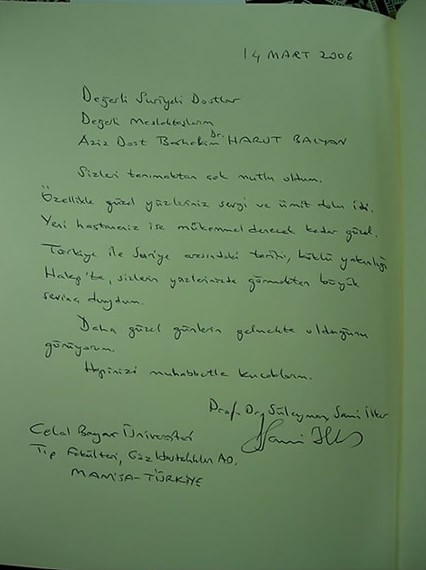 14 MART 2006
Değerli Suriyeli Dostlar
Değerli Meslektaşlarım
Aziz Dost Başhekim Dr. HARUT BALYAN
Sizleri tanımaktan çok mutlu oldum.
Özellikle güzel yüzleriniz sevgi ve ümit dolu idi.
Yeni hastaneniz ise mükemmel denecek kadar güzel.
Türkiye ile Suriye arasındaki tarihi, köklü yakınlığı
Halep'te, sizlerin yüzlerinizde görmekten büyük
sevinç duydum.
Daha güzel günlerin gelmekte olduğunu
görüyorum.
Hepinizi muhabbetle kucaklarım.
Prof. Dr. Süleyman Sami İlker
Celal Bayar Üniversitesi
Tıp Fakültesi, Göz Hastalıkları AD.
MANİSA-TÜRKİYE